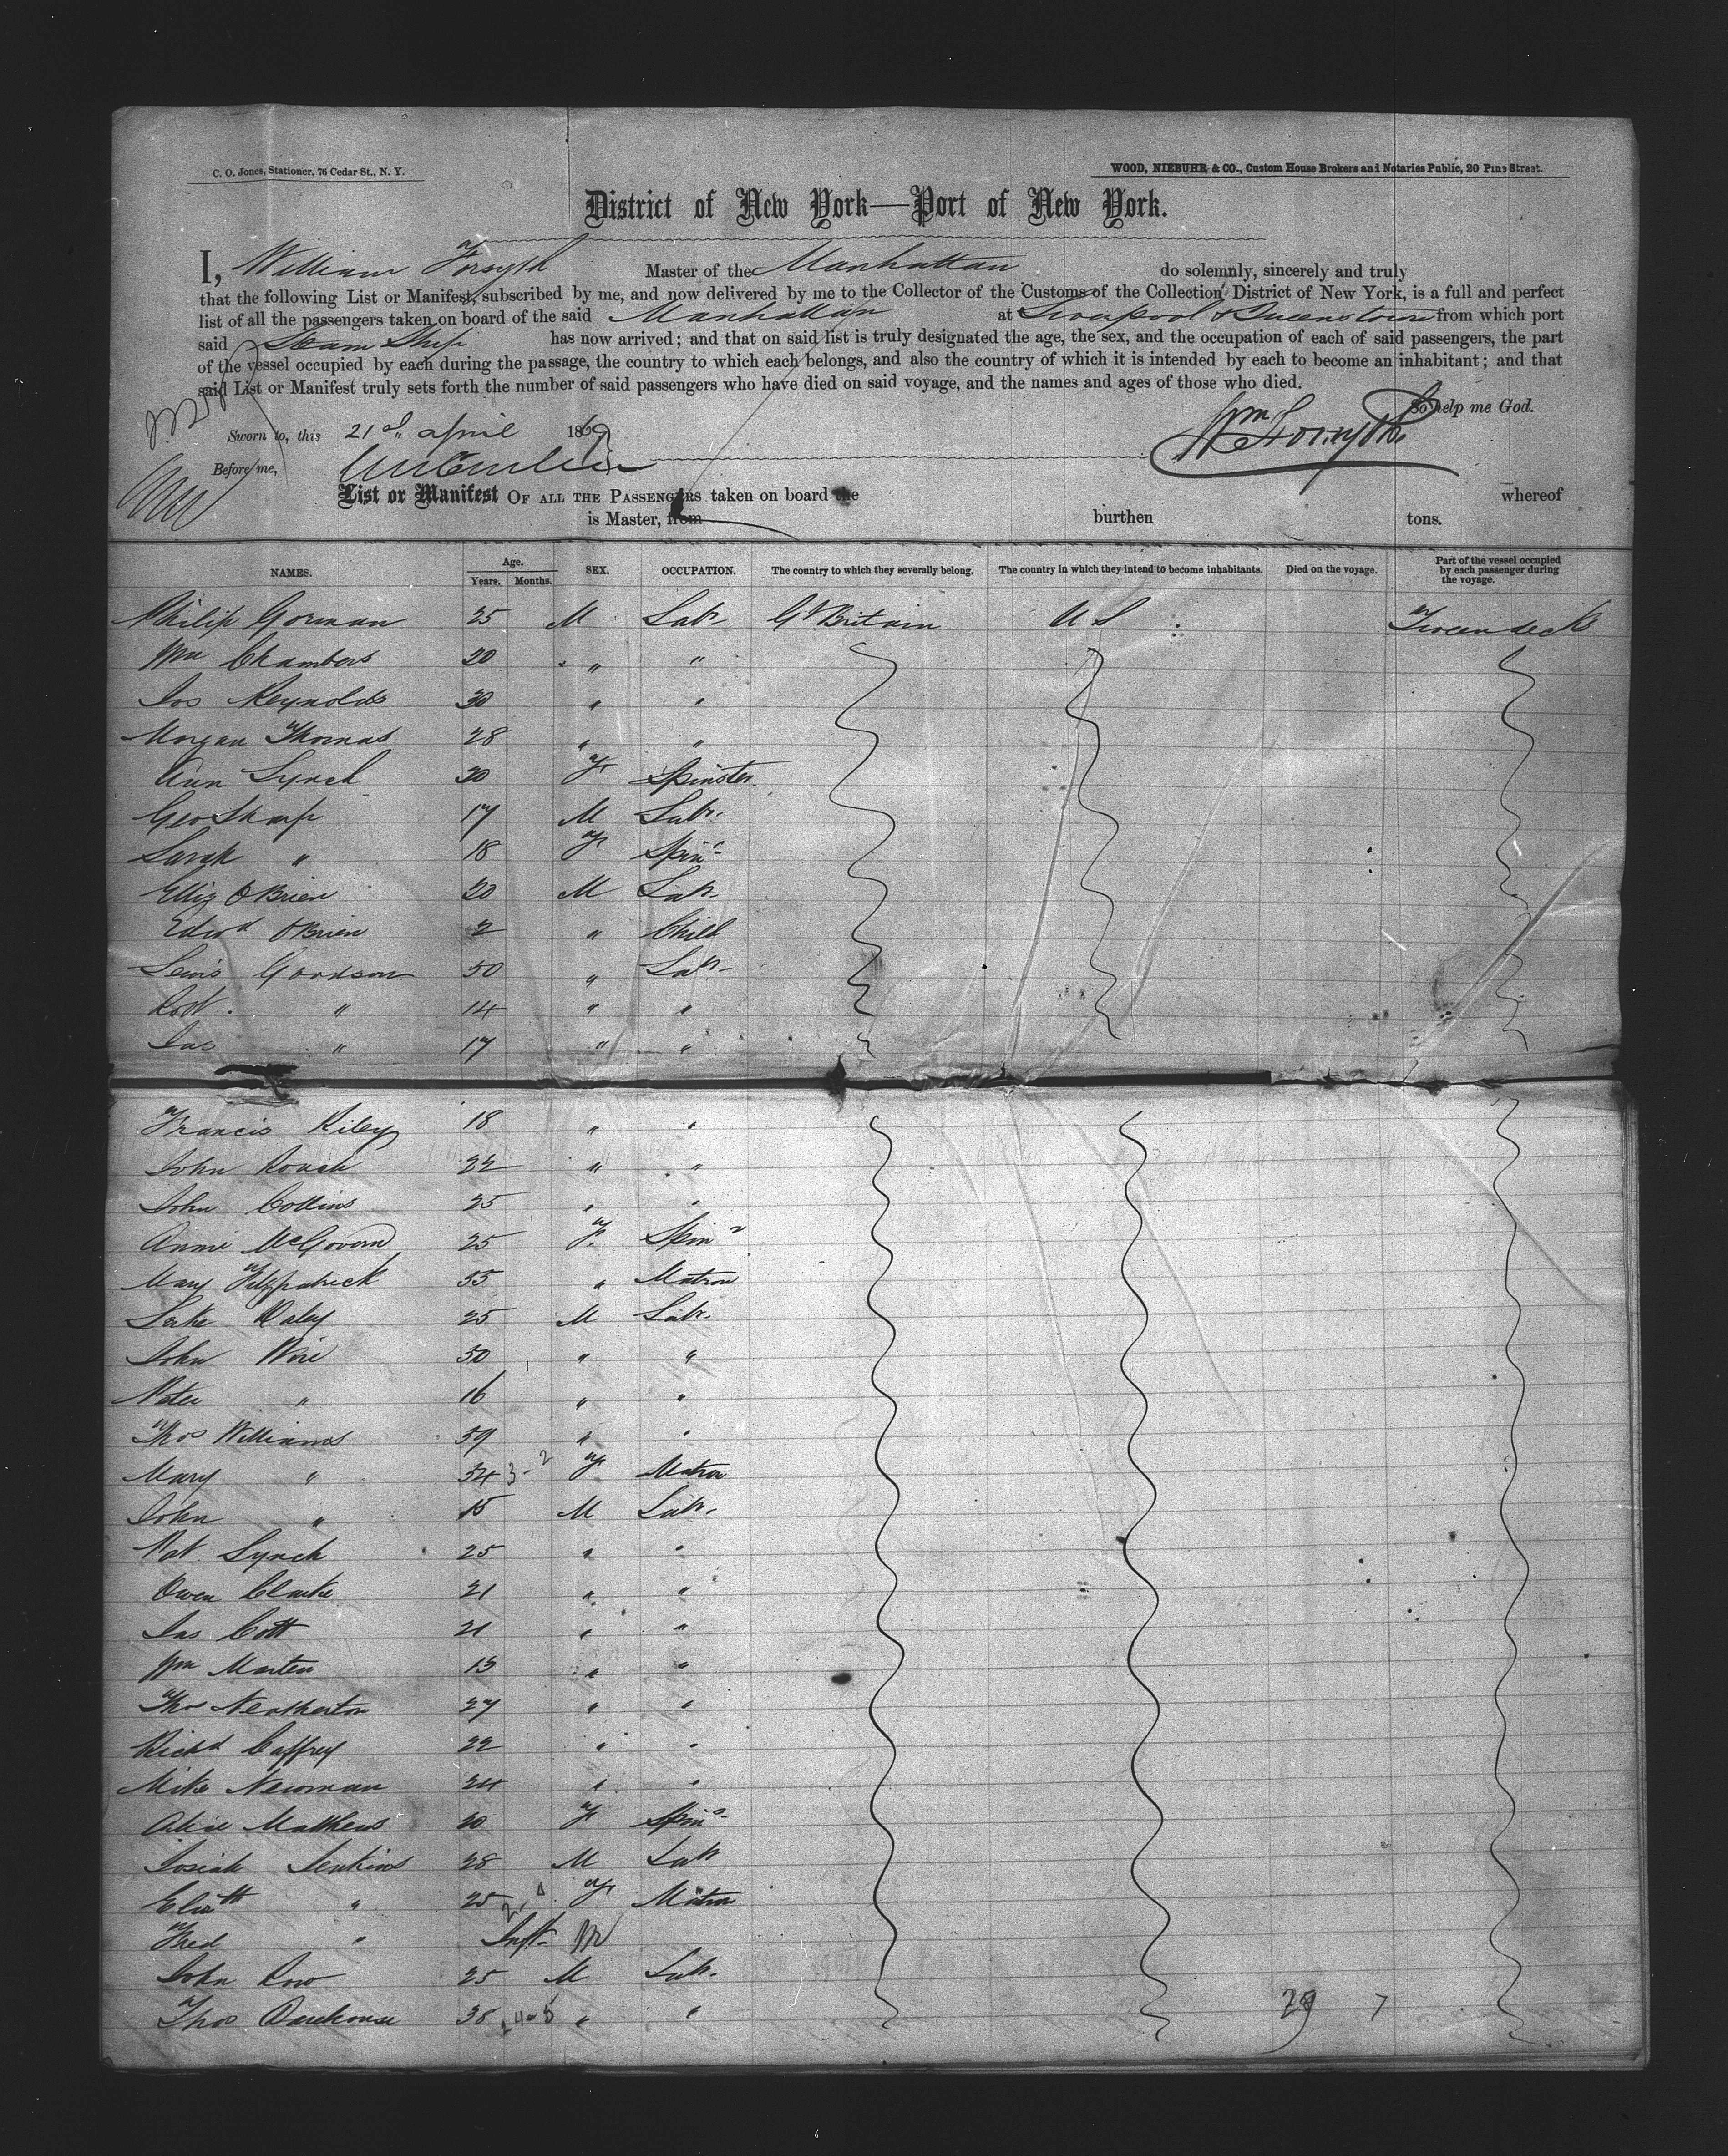 C. O. Jones, Stationer, 76 Cedar St., N. Y.
WOOD, NIEBUHR & CO., Custom House Brokers and Notaries Public, 20 Pine Street.
District of New York—Port of New York.
I, William Forsyth Master of the Manhattan do solemnly, sincerely and truly
that the following List or Manifest, subscribed by me, and now delivered by me to the Collector of the Customs of the Collection District of New York, is a full and perfect
list of all the passengers taken on board of the said Manhattan at Liverpool & Queenstown from which port
said Steam Ship has now arrived; and that on said list is truly designated the age, the sex, and the occupation of each of said passengers, the part
of the vessel occupied by each during the passage, the country to which each belongs, and also the country of which it is intended by each to become an inhabitant; and that
said List or Manifest truly sets forth the number of said passengers who have died on said voyage, and the names and ages of those who died.
So help me God.
Sworn to, this 21st april 1869 Wm Forsyth
Before me,
List or Manifest OF ALL THE PASSENGERS taken on board the whereof
is Master, from burthen tons.
NAMES. Age. Years. Months. SEX. OCCUPATION. The country to which they severally belong. The country in which they intend to become inhabitants. Died on the voyage. Part of the vessel occupied by each passenger during the voyage.
Philip Gorman 25 M Labr Gt Britain U S Tweendeck
Wm Chambers 20 " "
Jos Reynolds 30 " "
Morgan Thomas 28 " "
Ann Lynch 30 F Spinster
Geo Sharp 17 M Labr
Sarah " 18 F Spinr
Elliz O'Brien 20 M Labr
Edwd O'Brien 2 " Child
Lewis Goodson 50 " Labr
Robt " 14 " "
Jas " 17 " "
Francis Riley 18 " "
John Roach 22 " "
John Collins 25 " "
Annie McGovern 25 F Spinr
Mary Fitzpatrick 55 " Matron
Luke Daley 25 M Labr
John Wire 50 " "
Peter " 16 " "
Thos Williams 59 " "
Mary " 54 3-2 F Matron
John " 15 M Labr
Pat Lynch 25 " "
Owen Clarke 21 " "
Jas Cott 21 " "
Wm Marten 13 " "
Thos Neatherton 27 " "
Richd Caffrey 22 " "
Mike Newman 24 " "
Alice Mathews 20 F Spinr
Josiah Jenkins 28 M Labr
Elizth " 25 F Matron
Fred " Inft M
John Row 25 M Labr
Thos Darehouse 38 " "
29 7